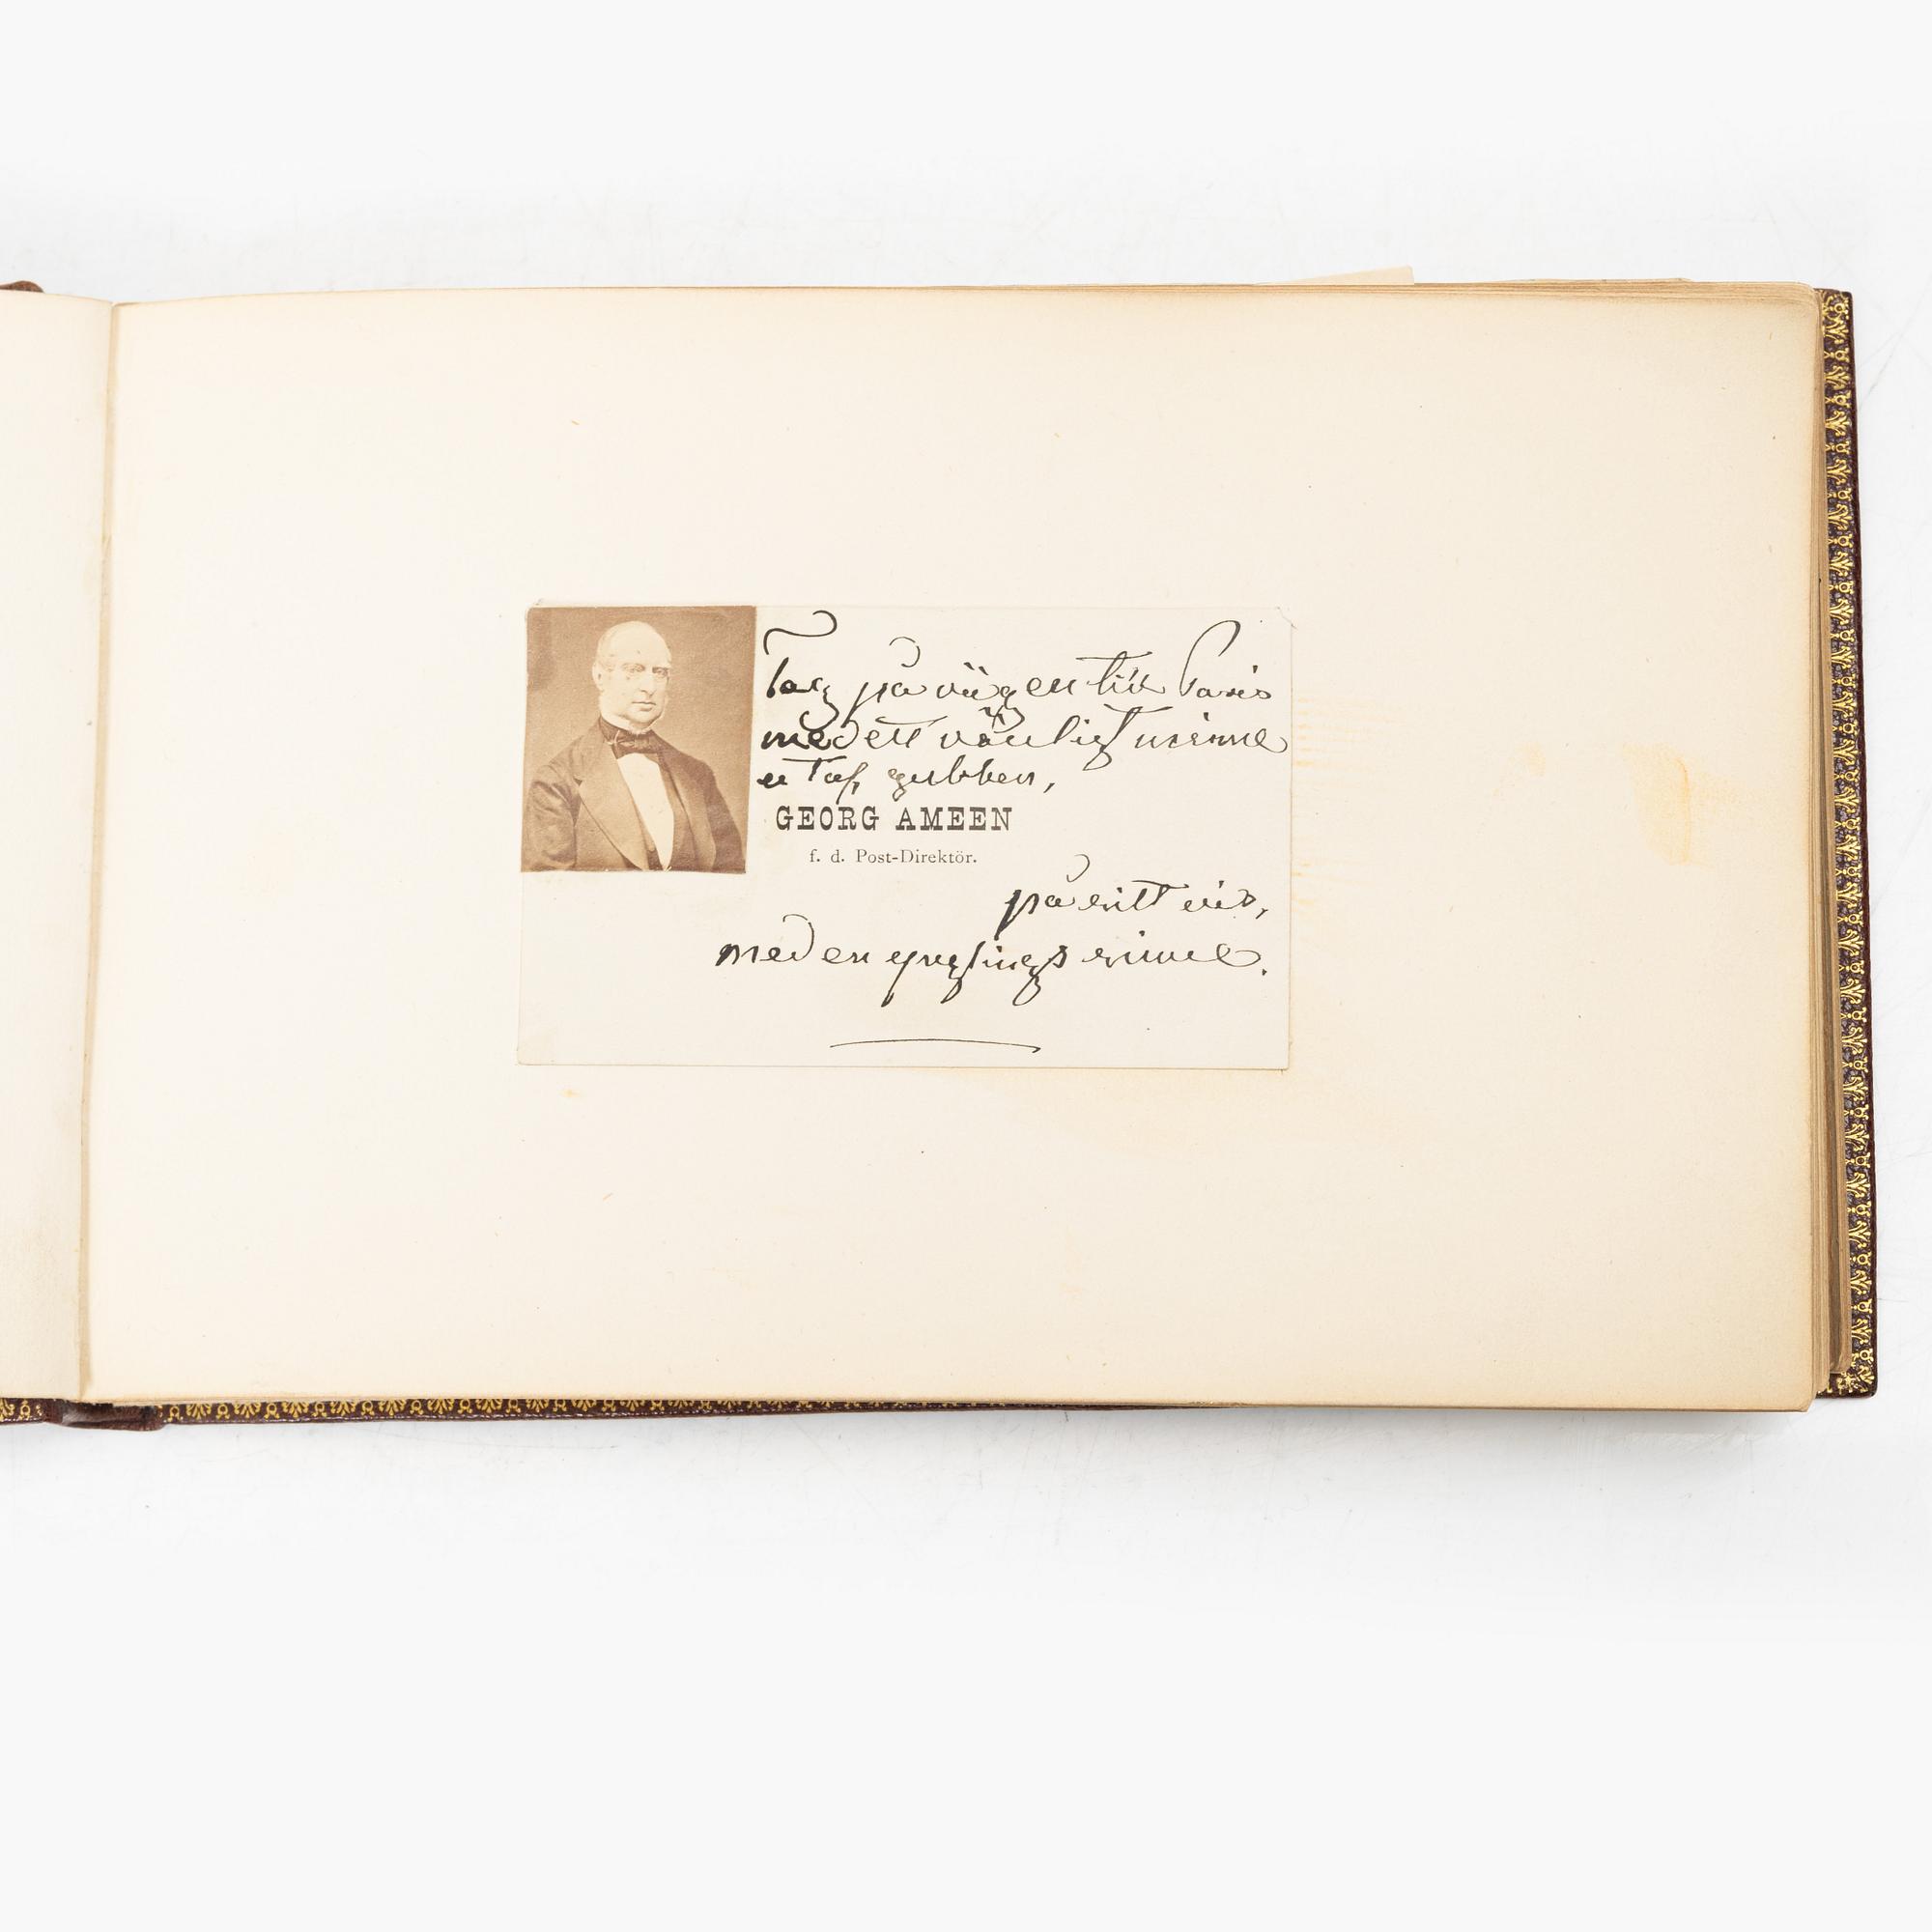 Tag på vägen till Paris
med ett vänligt minne
af gubben,
GEORG AMEEN
f. d. Post-Direktör.
på sitt vis,
med en ynglings sinne.